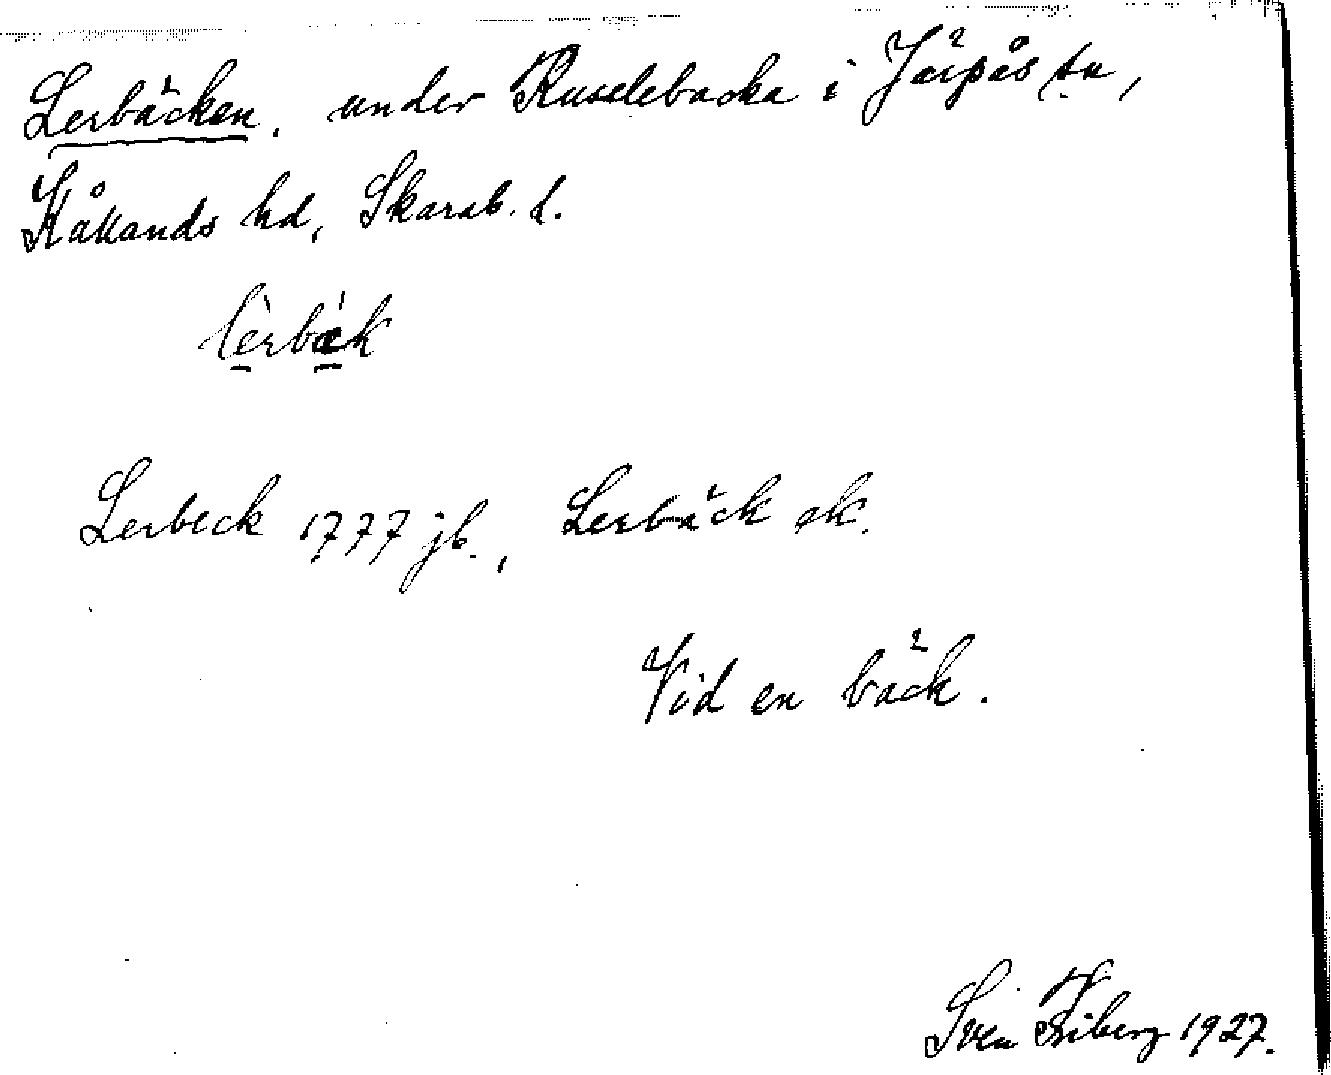 Lerbäcken, under Ruselebacka i Järpås sn,
Kållands hd, Skarab. l.
lèrbæ̀k
Lerbeck 1777 jb., Lerbäck ek.
Vid en bäck.
Sven Friberg 1927.